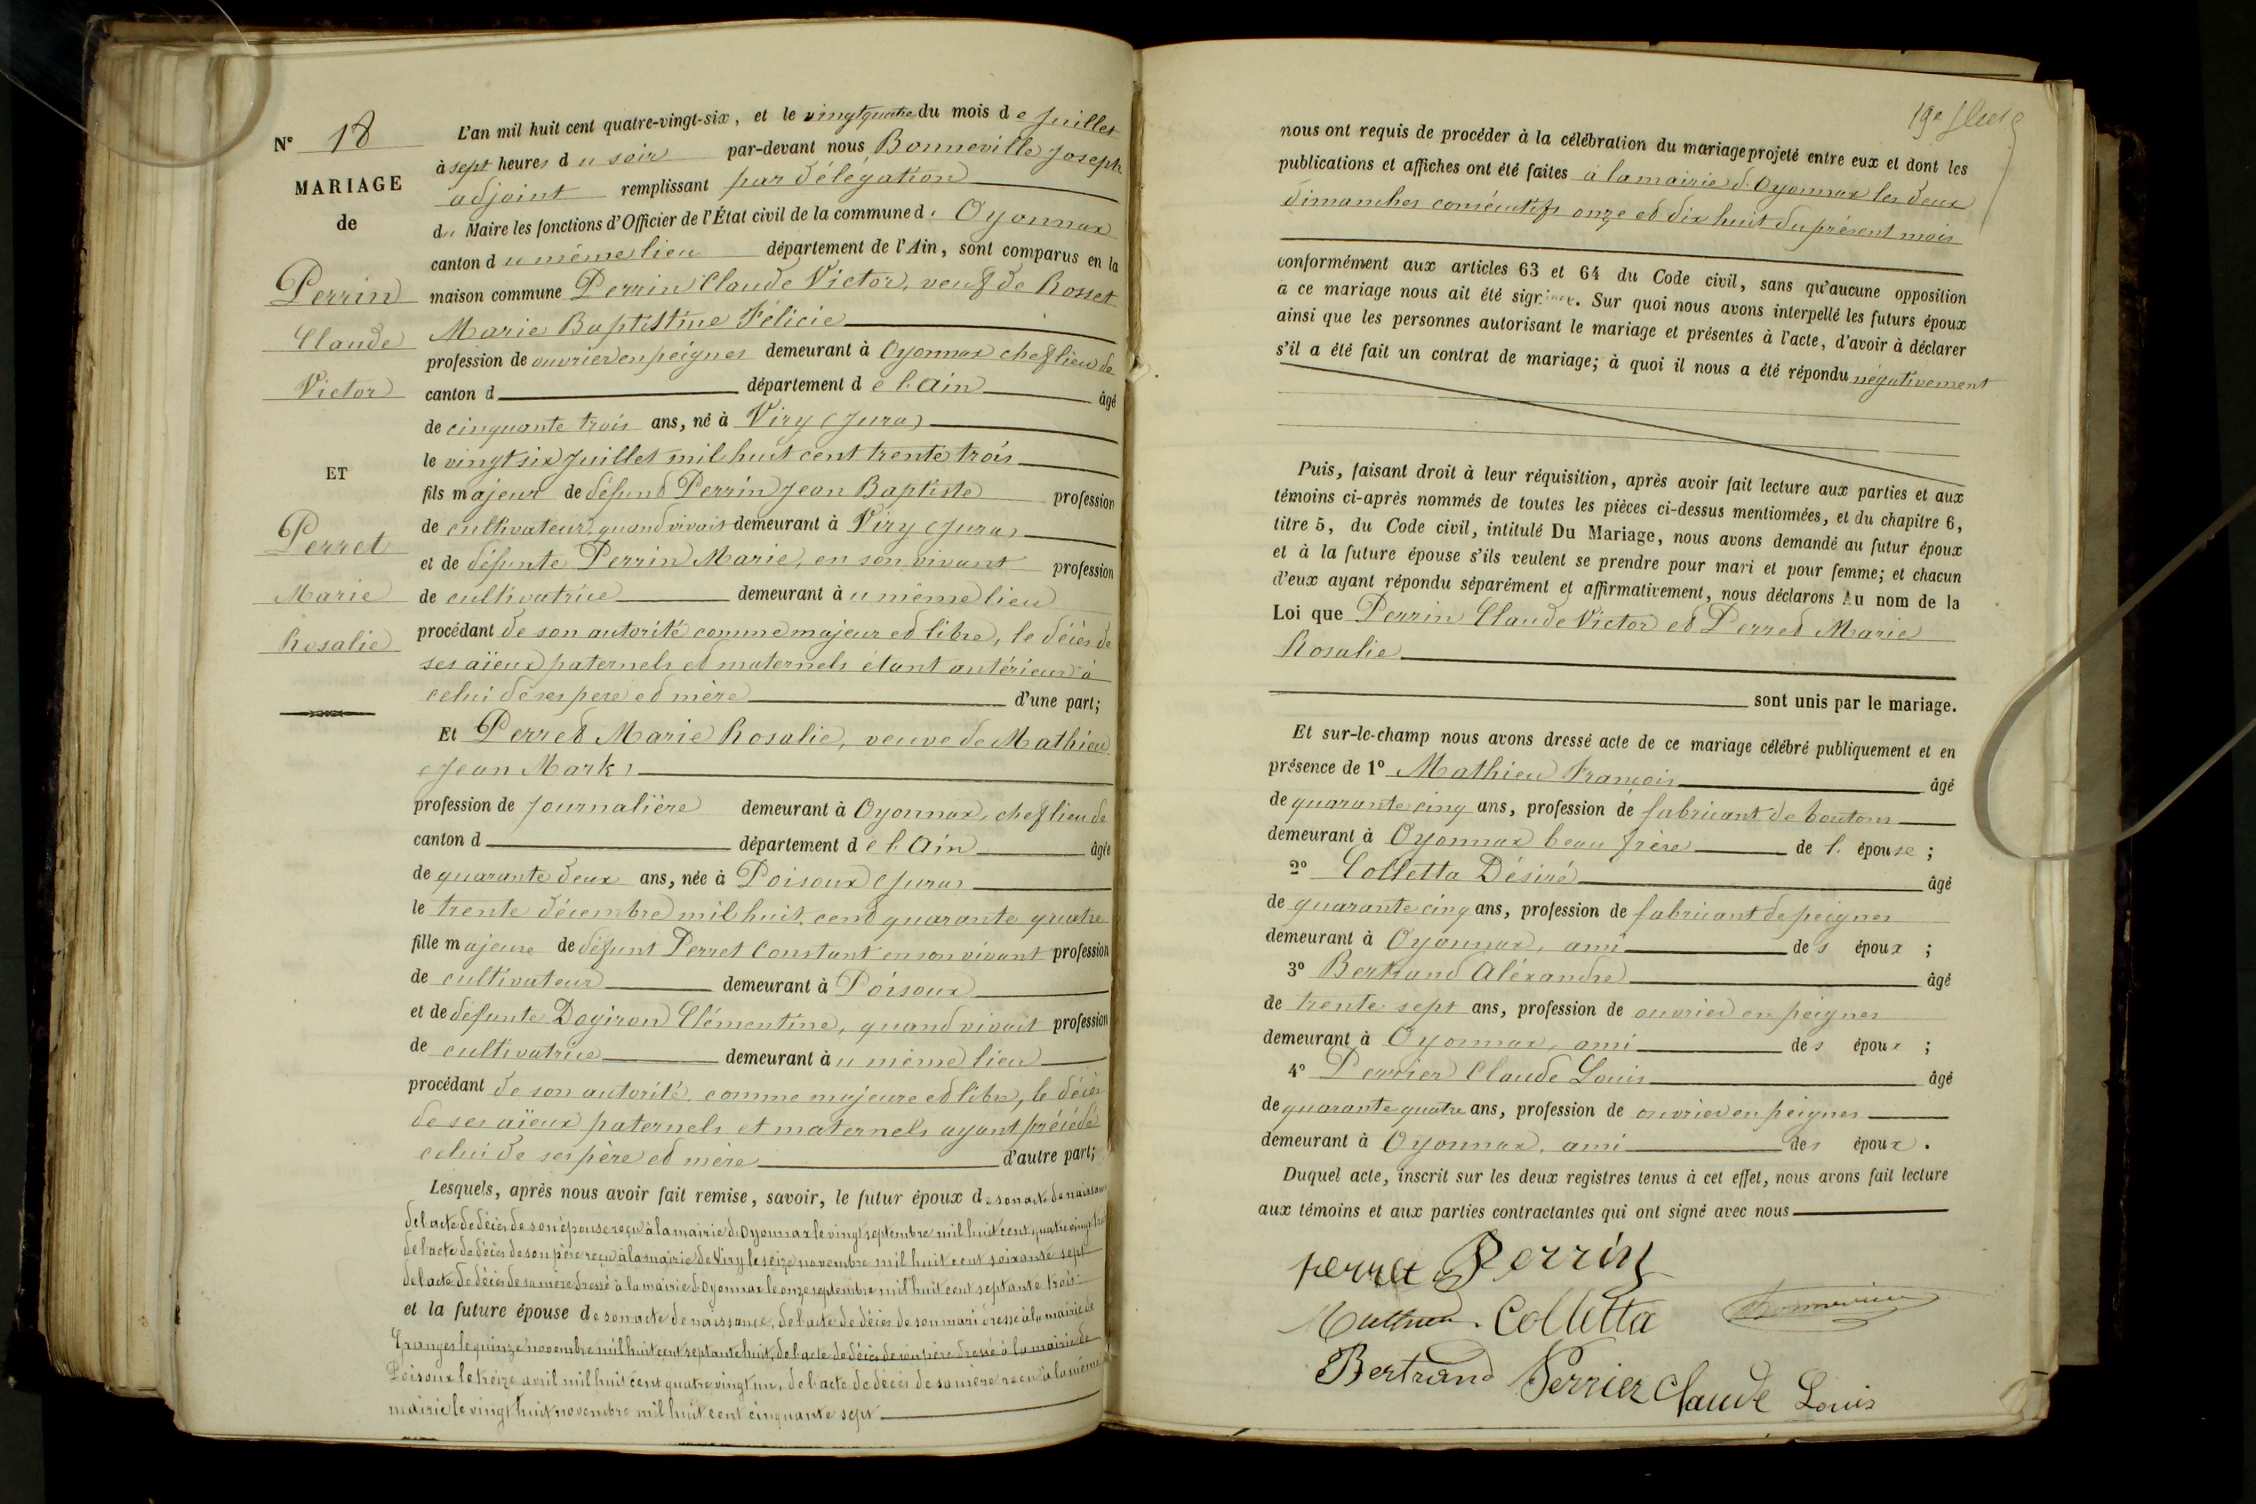 N° 18
MARIAGE
de
Perrin
Claude
Victor
ET
Perret
Marie
Rosalie
L'an mil huit cent quatre-vingt-six, et le vingtquatre du mois de Juillet
à sept heures du soir par-devant nous Bonneville Joseph
adjoint remplissant par délégation
du Maire les fonctions d'Officier de l'État civil de la commune d' Oyonnax
canton du même lieu département de l'Ain, sont comparus en la
maison commune Perrin Claude Victor, veuf de Rosset
Marie Baptistine Félicie
profession de ouvrier en peignes demeurant à Oyonnax chef lieu de
canton d département de l'Ain âgé
de cinquante trois ans, né à Viry (Jura)
le vingt six juillet mil huit cent trente trois
fils majeur de défunt Perrin Jean Baptiste profession
de cultivateur quand vivait demeurant à Viry (Jura)
et de défunte Perrin Marie, en son vivant profession
de cultivatrice demeurant au même lieu
procédant de son autorité comme majeur et libre, le décès de
ses aïeux paternels et maternels étant antérieur à
celui de ses père et mère d'une part;
Et Perret Marie Rosalie, veuve de Mathieu
(Jean Mark)
profession de Journalière demeurant à Oyonnax, chef lieu de
canton d département de l'Ain âgée
de quarante deux ans, née à Poisoux (Jura)
le trente décembre mil huit cent quarante quatre
fille majeure de défunt Perret Constant en son vivant profession
de cultivateur demeurant à Poisoux
et de défunte Dagiron Clémentine, quand vivait profession
de cultivatrice demeurant au même lieu
procédant de son autorité comme majeure et libre, le décès
de ses aïeux paternels et maternels ayant précédé
celui de ses père et mère d'autre part;
Lesquels, après nous avoir fait remise, savoir, le futur époux de son acte de naissance
de l'acte de décès de son épouse reçu à la mairie d'Oyonnax le vingt septembre mil huit cent quatre vingt trois
de l'acte de décès de son père reçu à la mairie de Viry le seize novembre mil huit cent soixante sept
de l'acte de décès de sa mère dressé à la mairie d'Oyonnax le onze septembre mil huit cent septante trois
et la future épouse de son acte de naissance, de l'acte de décès de son mari dressé à la mairie de
Granges le quinze novembre mil huit cent septante huit, de l'acte de décès de son père dressé à la mairie de
Poisoux le treize avril mil huit cent quatre vingt un, de l'acte de décès de sa mère reçu à la même
mairie le vingt huit novembre mil huit cent cinquante sept
nous ont requis de procéder à la célébration du mariage projeté entre eux et dont les
publications et affiches ont été faites à la mairie d'Oyonnax les deux
dimanches consécutifs onze et dix huit du présent mois
conformément aux articles 63 et 64 du Code civil, sans qu'aucune opposition
a ce mariage nous ait été signifiée. Sur quoi nous avons interpellé les futurs époux
ainsi que les personnes autorisant le mariage et présentes à l'acte, d'avoir à déclarer
s'il a été fait un contrat de mariage; à quoi il nous a été répondu négativement
Puis, faisant droit à leur réquisition, après avoir fait lecture aux parties et aux
témoins ci-après nommés de toutes les pièces ci-dessus mentionnées, et du chapitre 6,
titre 5, du Code civil, intitulé Du Mariage, nous avons demandé au futur époux
et à la future épouse s'ils veulent se prendre pour mari et pour femme; et chacun
d'eux ayant répondu séparément et affirmativement, nous déclarons Au nom de la
Loi que Perrin Claude Victor et Perret Marie
Rosalie
sont unis par le mariage.
Et sur-le-champ nous avons dressé acte de ce mariage célébré publiquement et en
présence de 1° Mathieu François âgé
de quarante cinq ans, profession de fabricant de boutons
demeurant à Oyonnax beau frère de l' épouse ;
2° Colletta Désiré âgé
de quarante cinq ans, profession de fabricant de peignes
demeurant à Oyonnax, ami des époux ;
3° Bertrand Aléxandre âgé
de trente sept ans, profession de ouvrier en peignes
demeurant à Oyonnax, ami des époux ;
4° Perrier Claude Louis âgé
de quarante quatre ans, profession de ouvrier en peignes
demeurant à Oyonnax, ami des époux .
Duquel acte, inscrit sur les deux registres tenus à cet effet, nous avons fait lecture
aux témoins et aux parties contractantes qui ont signé avec nous
perret Perrin
Mathieu Colletta Bonneville
Bertrand Perrier Claude Louis